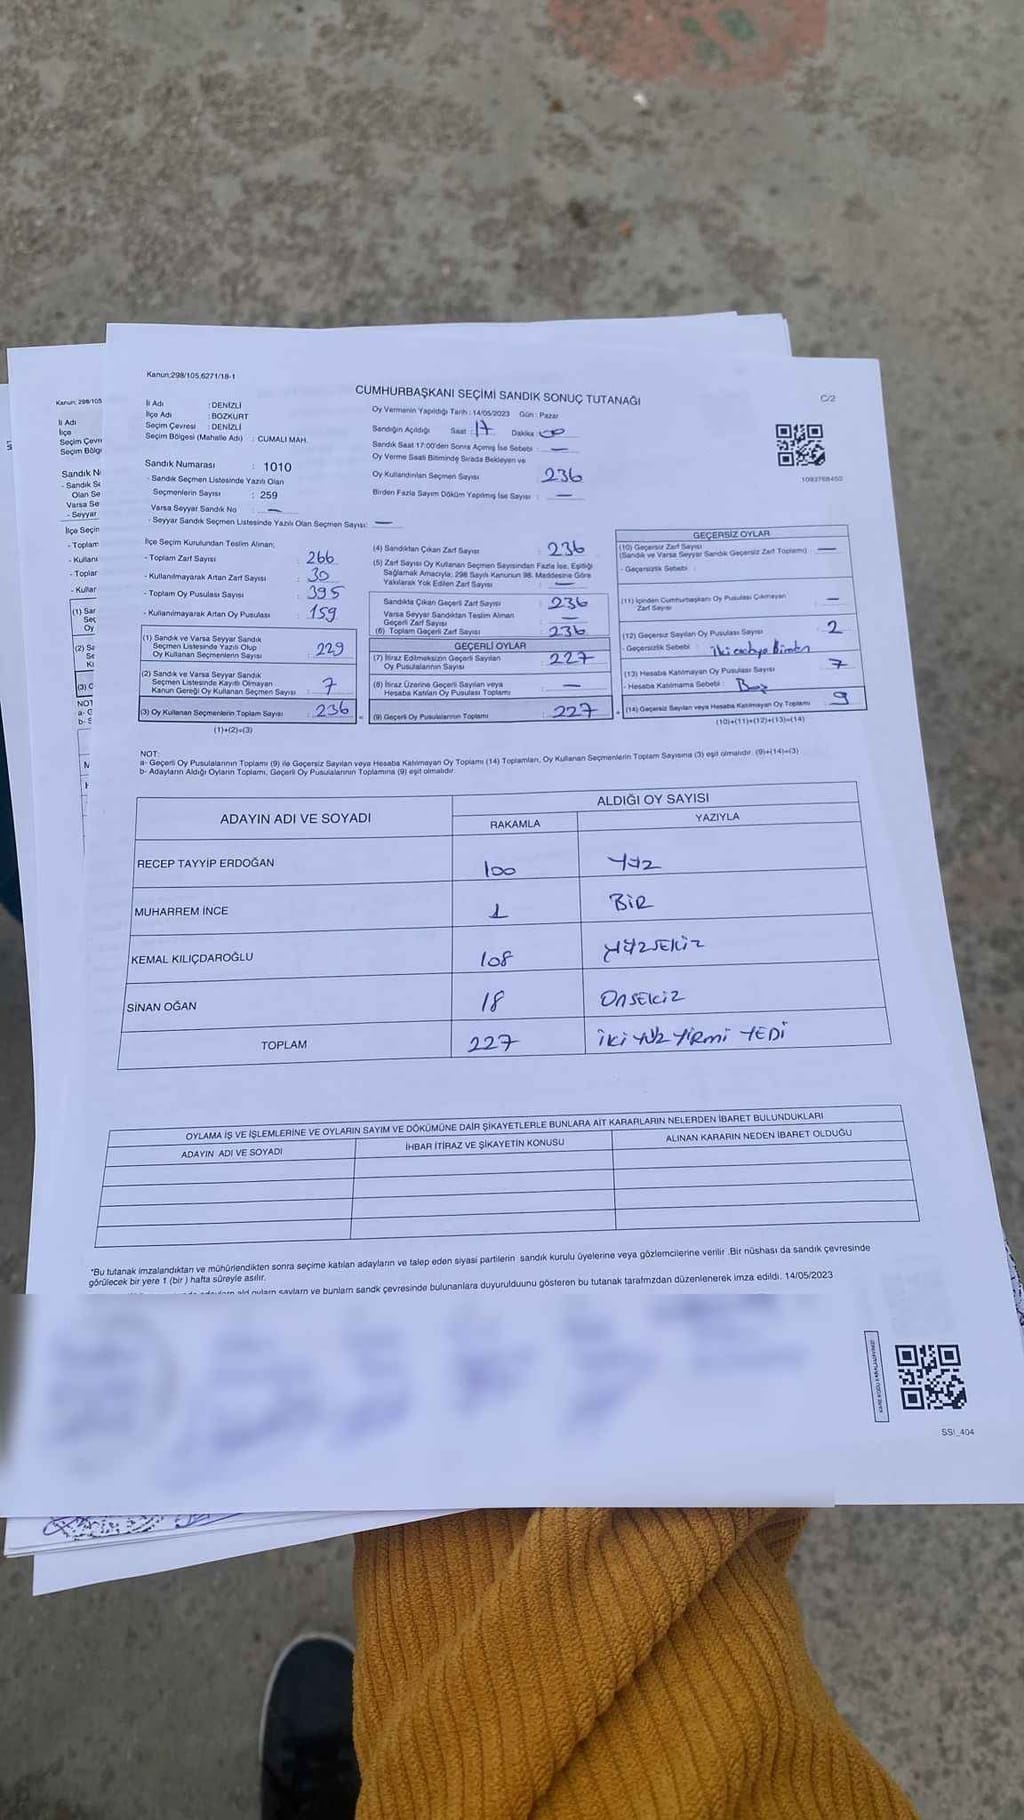 Kanun:298/105,6271/18-1
CUMHURBAŞKANI SEÇİMİ SANDIK SONUÇ TUTANAĞI
C/2
İli Adı : DENİZLİ
İlçe Adı : BOZKURT
Seçim Çevresi : DENİZLİ
Seçim Bölgesi (Mahalle Adı) : CUMALI MAH.
Sandık Numarası : 1010
- Sandık Seçmen Listesinde Yazılı Olan
Seçmenlerin Sayısı : 259
Varsa Seyyar Sandık No : —
- Seyyar Sandık Seçmen Listesinde Yazılı Olan Seçmen Sayısı: —
Oy Vermenin Yapıldığı Tarih : 14/05/2023 Gün : Pazar
Sandığın Açıldığı Saat : 17 Dakika 00
Sandık Saat 17:00'den Sonra Açımış İse Sebebi : —
Oy Verme Saati Bitiminde Sırada Bekleyen ve
Oy Kullandırılan Seçmen Sayısı : 236
Birden Fazla Sayım Döküm Yapılmış İse Sayısı : —
1093768450
İlçe Seçim Kurulundan Teslim Alınan;
- Toplam Zarf Sayısı : 266
- Kullanılmayarak Artan Zarf Sayısı : 30
- Toplam Oy Pusulası Sayısı : 395
- Kullanılmayarak Artan Oy Pusulası : 159
(1) Sandık ve Varsa Seyyar Sandık
Seçmen Listesinde Yazılı Olup
Oy Kullanan Seçmenlerin Sayısı : 229
(2) Sandık ve Varsa Seyyar Sandık
Seçmen Listesinde Kayıtlı Olmayan
Kanun Gereği Oy Kullanan Seçmen Sayısı : 7
(3) Oy Kullanan Seçmenlerin Toplam Sayısı : 236
(1)+(2)=(3)
(4) Sandıktan Çıkan Zarf Sayısı : 236
(5) Zarf Sayısı Oy Kullanan Seçmen Sayısından Fazla İse, Eşitliği
Sağlamak Amacıyla; 298 Sayılı Kanunun 98. Maddesine Göre
Yakılarak Yok Edilen Zarf Sayısı : —
Sandıkta Çıkan Geçerli Zarf Sayısı : 236
Varsa Seyyar Sandıktan Teslim Alınan
Geçerli Zarf Sayısı : —
(6) Toplam Geçerli Zarf Sayısı : 236
GEÇERLİ OYLAR
(7) İtiraz Edilmeksizin Geçerli Sayılan
Oy Pusulalarının Sayısı : 227
(8) İtiraz Üzerine Geçerli Sayılan veya
Hesaba Katılan Oy Pusulası Toplamı : —
(9) Geçerli Oy Pusulalarının Toplamı : 227
GEÇERSİZ OYLAR
(10) Geçersiz Zarf Sayısı
(Sandık ve Varsa Seyyar Sandık Geçersiz Zarf Toplamı) : —
- Geçersizlik Sebebi :
(11) İçinden Cumhurbaşkanı Oy Pusulası Çıkmayan
Zarf Sayısı : —
(12) Geçersiz Sayılan Oy Pusulası Sayısı : 2
- Geçersizlik Sebebi :
(13) Hesaba Katılmayan Oy Pusulası Sayısı : 7
- Hesaba Katılmama Sebebi : Boş
(14) Geçersiz Sayılan veya Hesaba Katılmayan Oy Toplamı : 9
(10)+(11)+(12)+(13)=(14)
NOT:
a- Geçerli Oy Pusulalarının Toplamı (9) ile Geçersiz Sayılan veya Hesaba Katılmayan Oy Toplamı (14) Toplamları, Oy Kullanan Seçmenlerin Toplam Sayısına (3) eşit olmalıdır. (9)+(14)=(3)
b- Adayların Aldığı Oyların Toplamı, Geçerli Oy Pusulalarının Toplamına (9) eşit olmalıdır.
ADAYIN ADI VE SOYADI
ALDIĞI OY SAYISI
RAKAMLA YAZIYLA
RECEP TAYYİP ERDOĞAN 100 YÜZ
MUHARREM İNCE 1 BİR
KEMAL KILIÇDAROĞLU 108 YÜZSEKİZ
SİNAN OĞAN 18 ONSEKİZ
TOPLAM 227 İKİ YÜZ YİRMİ YEDİ
OYLAMA İŞ VE İŞLEMLERİNE VE OYLARIN SAYIM VE DÖKÜMÜNE DAİR ŞİKAYETLERLE BUNLARA AİT KARARLARIN NELERDEN İBARET BULUNDUKLARI
ADAYIN ADI VE SOYADI İHBAR İTİRAZ VE ŞİKAYETİN KONUSU ALINAN KARARIN NEDEN İBARET OLDUĞU
*Bu tutanak imzalandıktan ve mühürlendikten sonra seçime katılan adayların ve talep eden siyasi partilerin sandık kurulu üyelerine veya gözlemcilerine verilir .Bir nüshası da sandık çevresinde
görülecek bir yere 1 (bir ) hafta süreyle asılır.
oyların sayların ve bunların sandk çevresinde bulunanlara duyurulduunu gösteren bu tutanak tarafmzdan düzenlenerek imza edildi. 14/05/2023
SSI_404